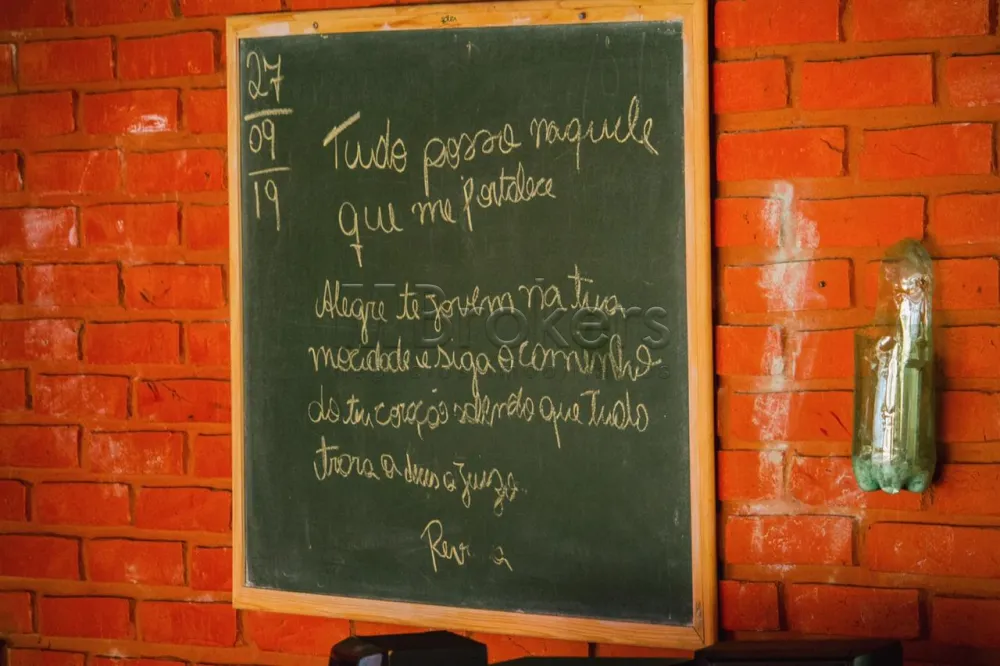 27
09
19
Tudo posso naquele
que me fortalece
Alegre te jovem na tua
mocidade e siga o caminho
do teu coração sabendo que Tudo
trara a deus a juizo
Rev
Brokers